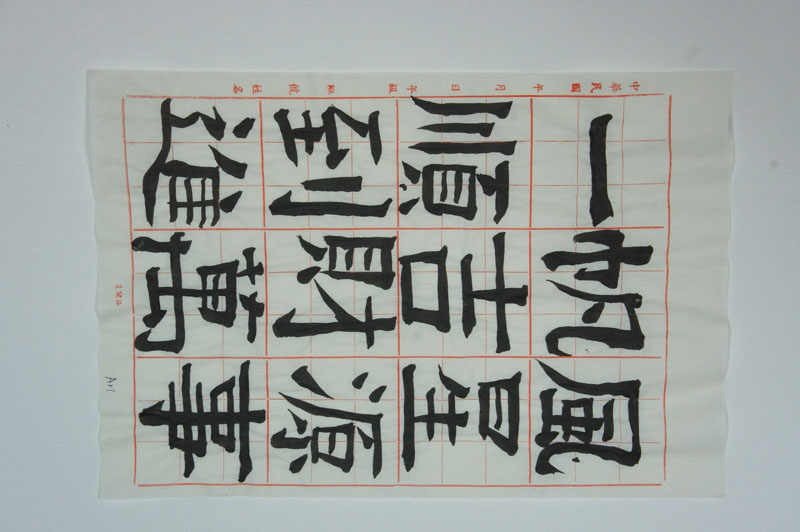 中華民國 年 月 日 年級 班 號 姓名
一帆風
順吉星
到財源
進萬事